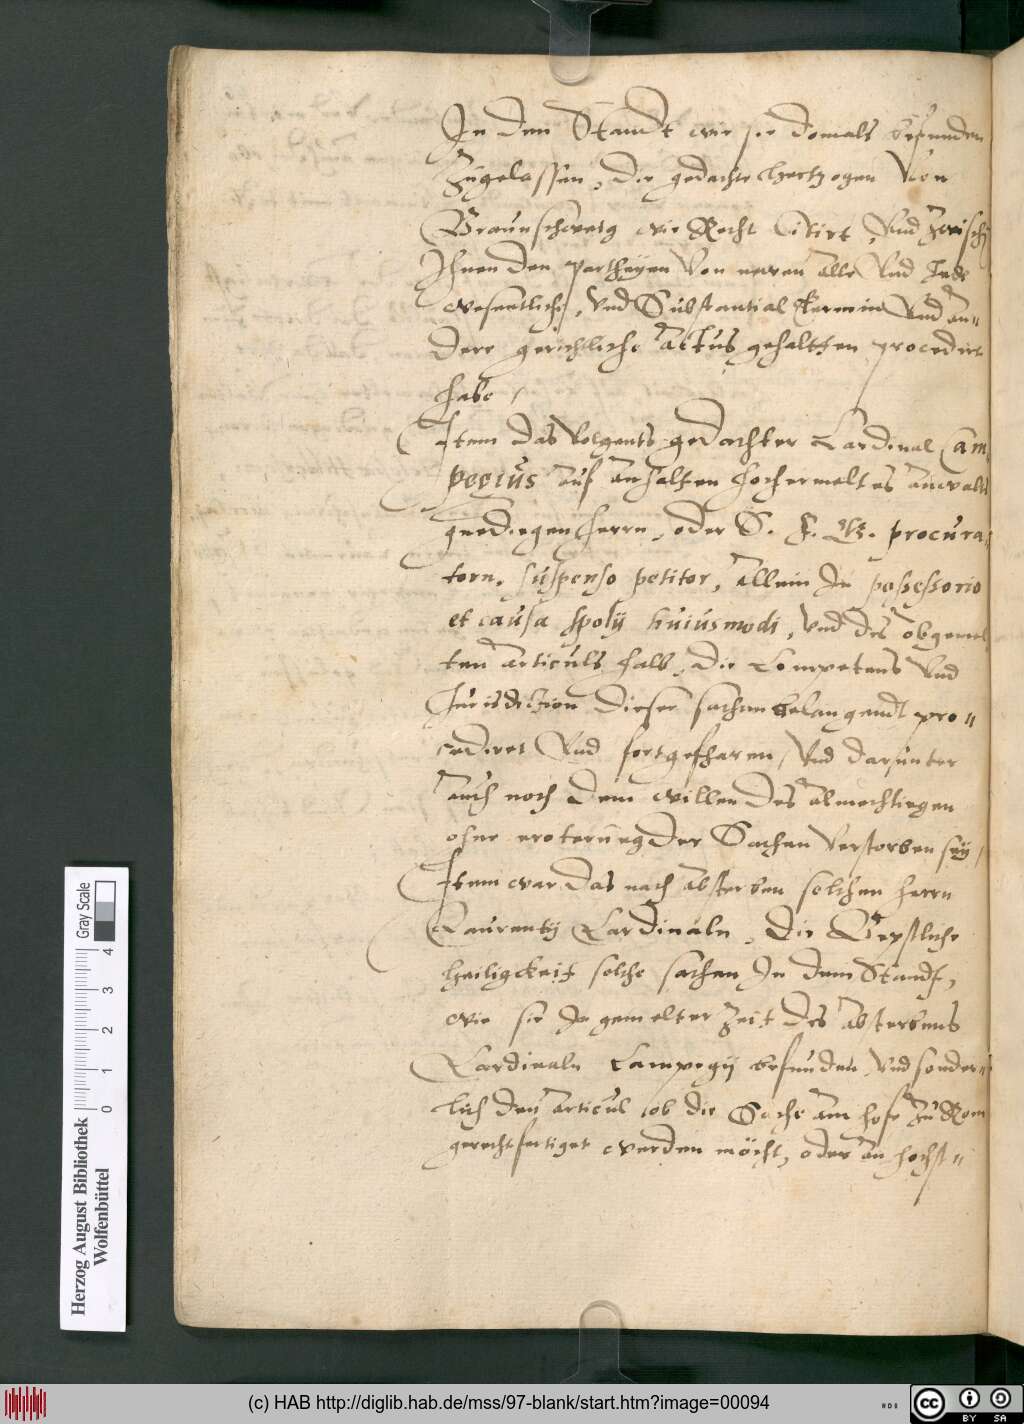 In den Standt wie sie domals befunden
Zugelassen, die gedachte hertzogen von
Braunschweig wie Recht Citirt, Vnd zwisch
Ihnen den partheyen von newen alle vnd Jede
wesentliche, vnd Substantial Termin vnd an=
dere gerichtliche actus gehaltten procedirt
habe /
Item das volgents gedachter Cardinal Cam
pegius auf anhalten hochermeltes anwalts
gnedigen herrn, oder S. F. G. procura=
torn, suspenso petitor, allein In possessorio
et causa spolÿ huiusmodi, vnd des obgemel
ten articuls halb, die Competens vnd
Jurisdiction dieser sachen belangendt pro=
cediret vnd fortgefharen, vnd darunter
auch noch dem willen des almechtiegen
ohne eroterung der Sachen verstorben seÿ /
Item war das nach absterben solchen herrn
Laurentÿ Cardinaln, die Bepstliche
heiligckeit solche sachen In dem Standt,
wie sie In gemelter zeit des absterbens
Cardinaln Campegÿ befunden, vnd sonder=
lich den articul ob die Sache am hofe zu Rom
gerechtfertiget werden möcht, oder an hochst=
Herzog August Bibliothek
Wolfenbüttel
0 1 2 3 4
Gray Scale
(c) HAB http://diglib.hab.de/mss/97-blank/start.htm?image=00094
cc
BY SA